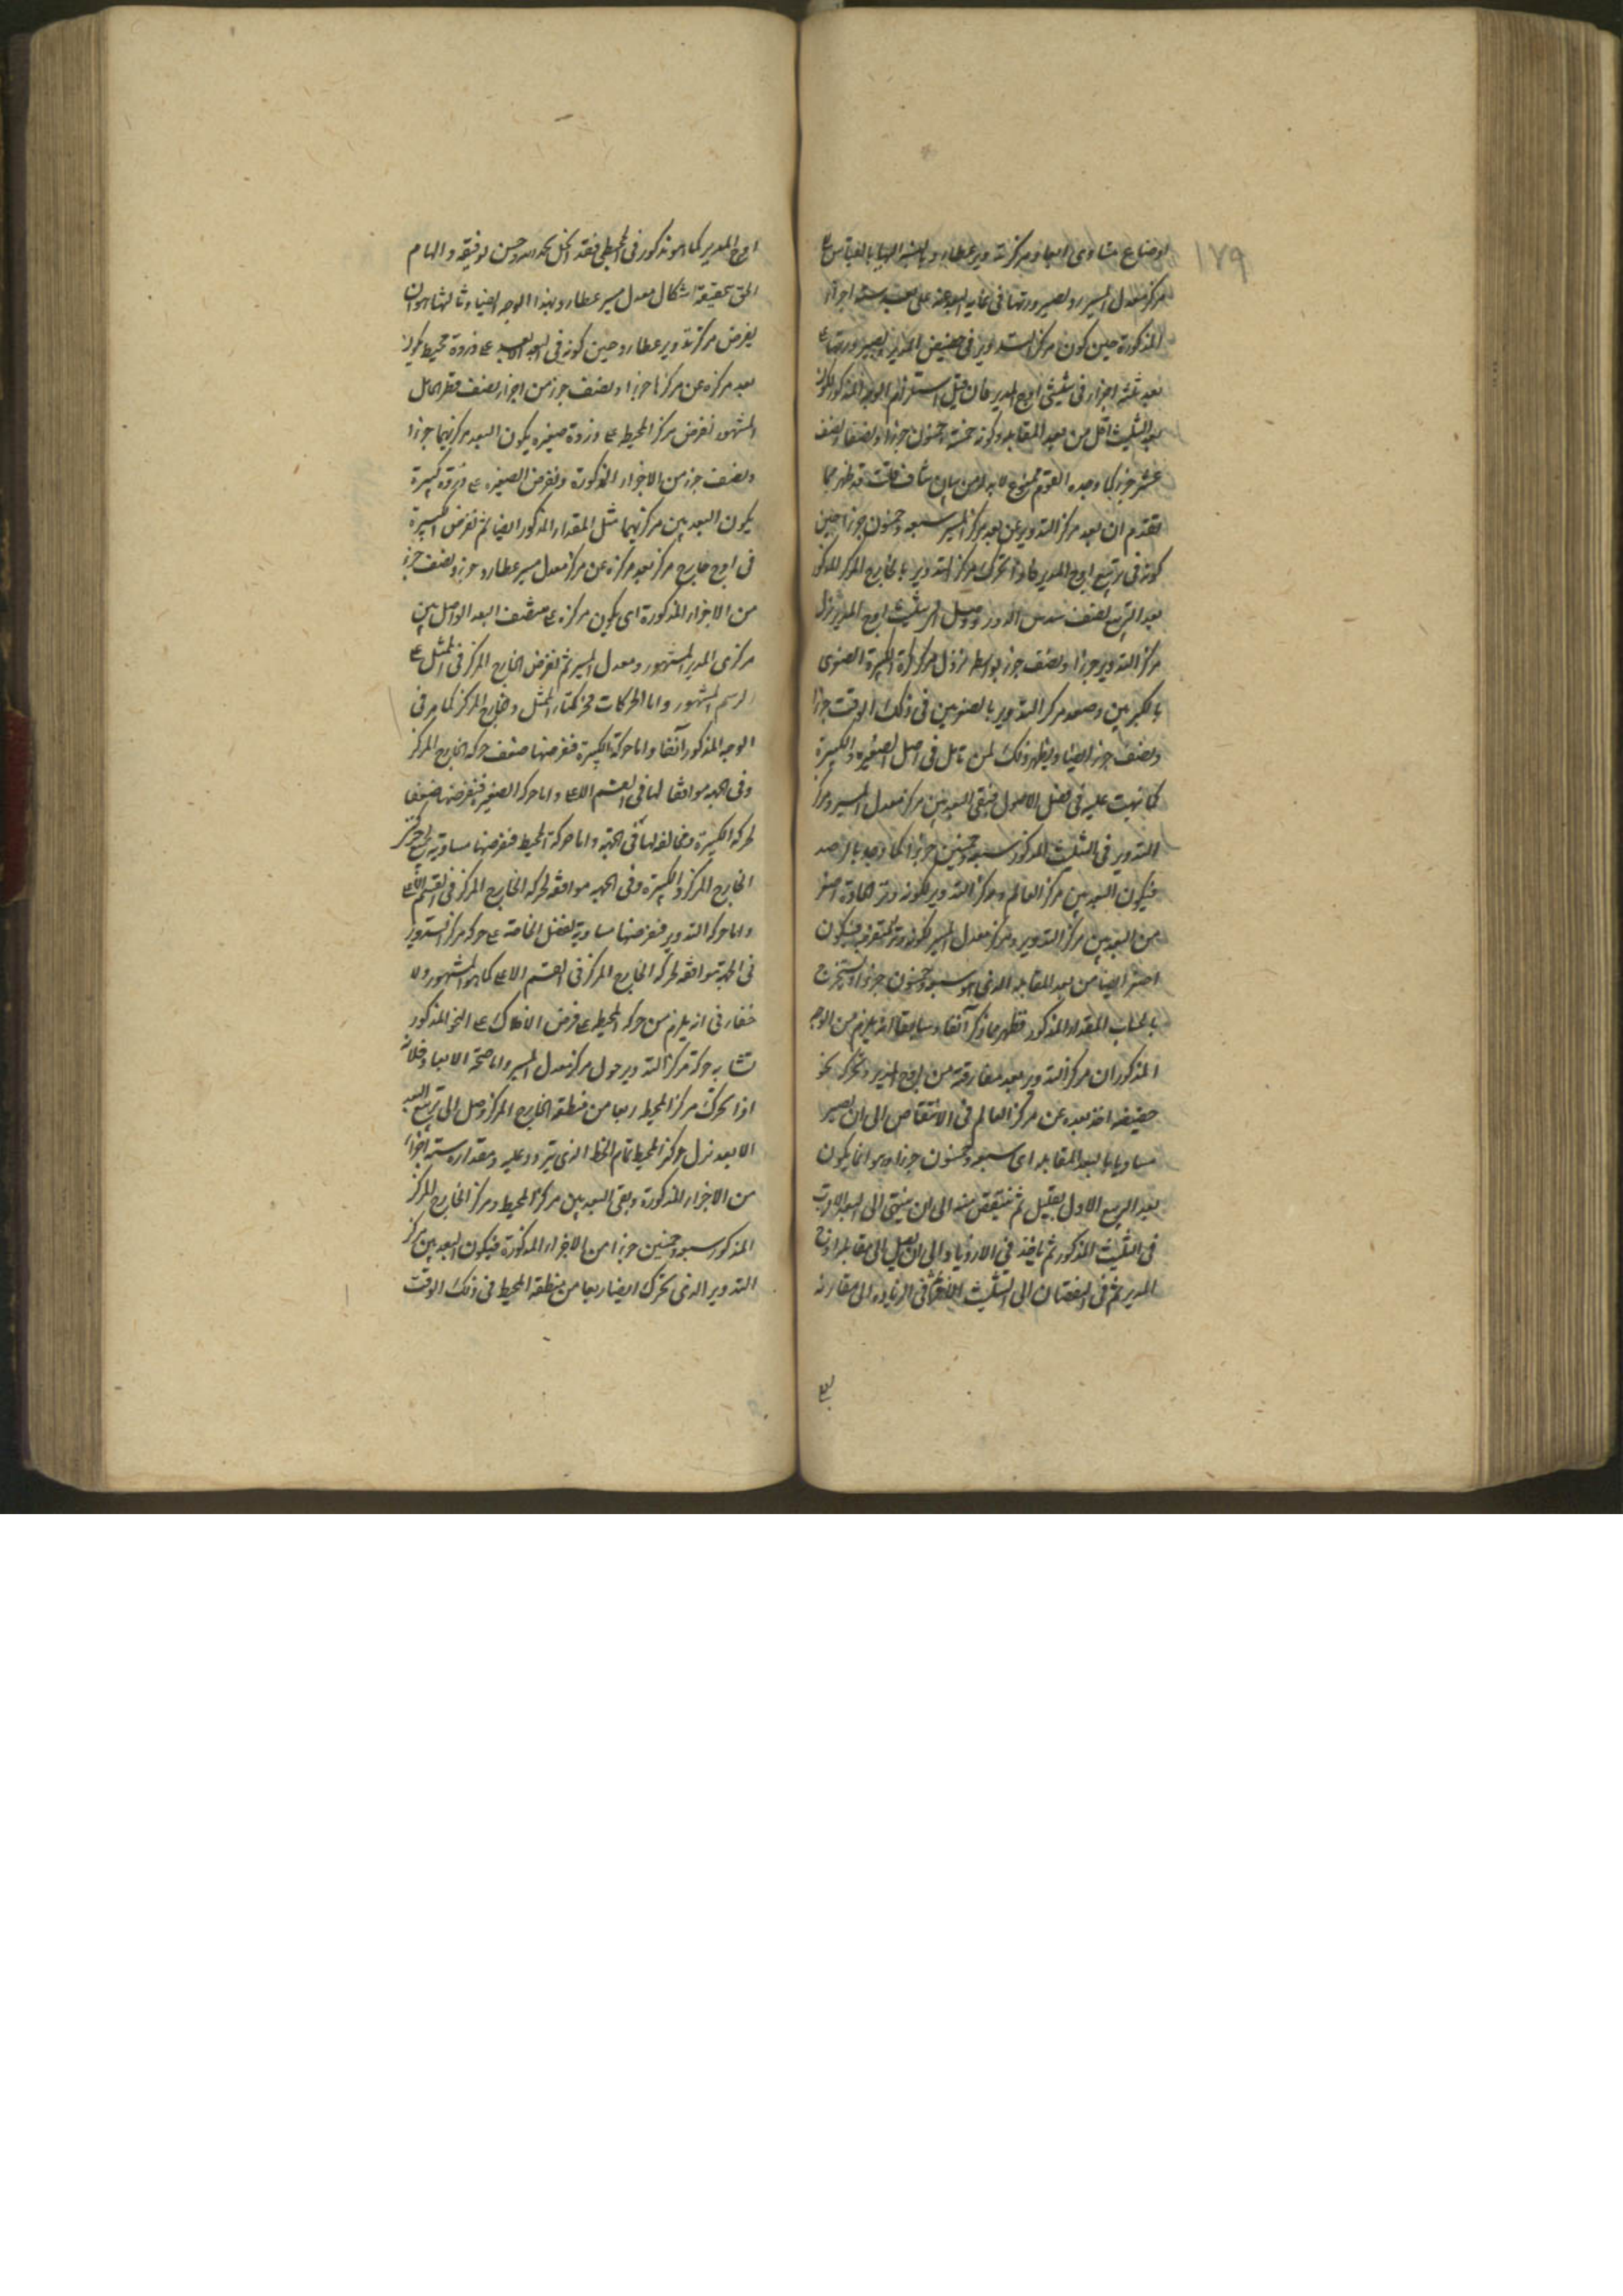 ١٧٩
اوضاع متساوى ابعاد مركز تدوير عطارد بالنسبة اليها بالقياس الى
مركز معدل المسير وبصيرورتها فى غاية البعد عنه على بعد ستة اجزاء
المذكورة حين كون مركز التدوير فى حضيض المدير وبصيرورتها على
بعد ثلثة اجزاء فى تثليثى اوج المدير فان قيل استلزام الوجه المذكور لكون
بعد التثليث اقل من بعد المقابلة وكونه خمسة وخمسون جزءا ونصفا ونصف
عشر جزء كما وجده القوم ممنوع لا بد له من بيان شاف قلت قد ظهر مما
تقدم ان بعد مركز التدوير عن مركز المسير سبعة وخمسون جزءا حين
كونه فى تربيع اوج المدير فاذا تحرك مركز التدوير بالخارج المركز المذكور
بعد التربيع نصف سدس الدور ووصل الى تثليث اوج المدير نزل
مركز التدوير جزءا ونصف جزء بواسطة نزول مركز كرة الكبيرة الصغرى
بالكبريين وصعد مركز التدوير بالصغريين فى ذلك الوقت جزءا
ونصف جزء ايضا ويظهر ذلك لمن تامل فى اصل الصغيرة والكبيرة
كما نبهت عليه فى فصل الاصول فبقى البعد بين مركز معدل المسير ومركز
التدوير فى التثليث المذكور سبعة وخمسين جزءا كما وجد بالرصد
فيكون البعد بين مركز العالم ومركز التدوير لكونه وتر الحادة اصغر
من البعد بين مركز التدوير ومركز معدل المسير لكونه وتر المنفرجة فيكون
اصغر ايضا من بعد المقابلة الذى هو سبعة وخمسون جزءا ويستخرج
بالحساب المقدار المذكور فظهر مما ذكر آنفا وسابقا انه يلزم من الوجه
المذكور ان مركز التدوير بعد مفارقته من اوج المدير وتحركه نحو
حضيضه اخذ بعده عن مركز العالم فى الانتقاص الى ان يصير
مساويا لبعد المقابلة اى سبعة وخمسون جزءا وهو انما يكون
بعد الربع الاول بقليل ثم ينتقص منه الى ان ينتهى الى البعد الاقرب
فى التثليث المذكور ثم ياخذ فى الازدياد الى ان يصل الى مقابلة اوج
المدير ثم فى النقصان الى التثليث الآخر ثم فى الزيادة الى مقارنة
اوج المدير كما هو مذكور فى المجسطى فقد انحل بحمد الله وحسن توفيقه والهام
الحق بحقيقة اشكال معدل مسير عطارد بهذا الوجه ايضا وثالثها هو ان
يفرض مركز تدوير عطارد حين كونه فى البعد الابعد على ذروة محيط يكون
بعد مركزه عن مركزها جزءا ونصف جزء من اجزاء نصف قطر الحامل
المشهور نفرض مركز المحيط على ذروة صغيرة يكون البعد مركزيهما جزءا
ونصف جزء من الاجزاء المذكورة ونفرض الصغيرة على ذروة كبيرة
يكون البعد بين مركزيهما مثل المقدار المذكور ايضا ثم نفرض الكبيرة
فى اوج خارج مركز بعد مركزه عن مركز معدل مسير عطارد جزء ونصف جزء
من الاجزاء المذكورة اى يكون مركزه على منتصف البعد الواصل بين
مركزى المدير المشهور ومعدل المسير ثم نفرض الخارج المركز فى الممثل على
الرسم المشهور واما الحركات فحركتا الممثل وخارج المركز كما مر فى
الوجه المذكور آنفا واما حركة الكبيرة فنفرضها ضعف حركة الخارج المركز
وفى الجهة موافقا لها فى القسم الاعلى واما حركة الصغيرة فنفرضها ضعفا
لحركة الكبيرة ومخالفة لها فى الجهة واما حركة المحيط فنفرضها مساوية لحركتى
الخارج المركز والكبيرة وفى الجهة موافقة لحركة الخارج المركز فى القسم الاعلى
واما حركة التدوير فنفرضها مساوية لفضل الخاصة على حركة مركز التدوير
فى الجهة موافقة لحركة الخارج المركز فى القسم الاعلى كما هو المشهور ولا
خفاء فى انه يلزم من حركة المحيط على فرض الافلاك على النحو المذكور
تشابه حركة مركز التدوير حول مركز معدل المسير واما صحة الابعاد فلانه
اذا تحرك مركز المحيط ربعا من منطقة الخارج المركز وصل الى تربيع البعد
الابعد نزل مركز المحيط تمام الخط الذى يتردد عليه ومقداره ستة اجزاء
من الاجزاء المذكورة وبقى البعد بين مركز المحيط ومركز الخارج المركز
المذكور سبعة وخمسين جزءا من الاجزاء المذكورة فيكون البعد بين مركز
التدوير الذى تحرك ايضا ربعا من منطقة المحيط فى ذلك الوقت